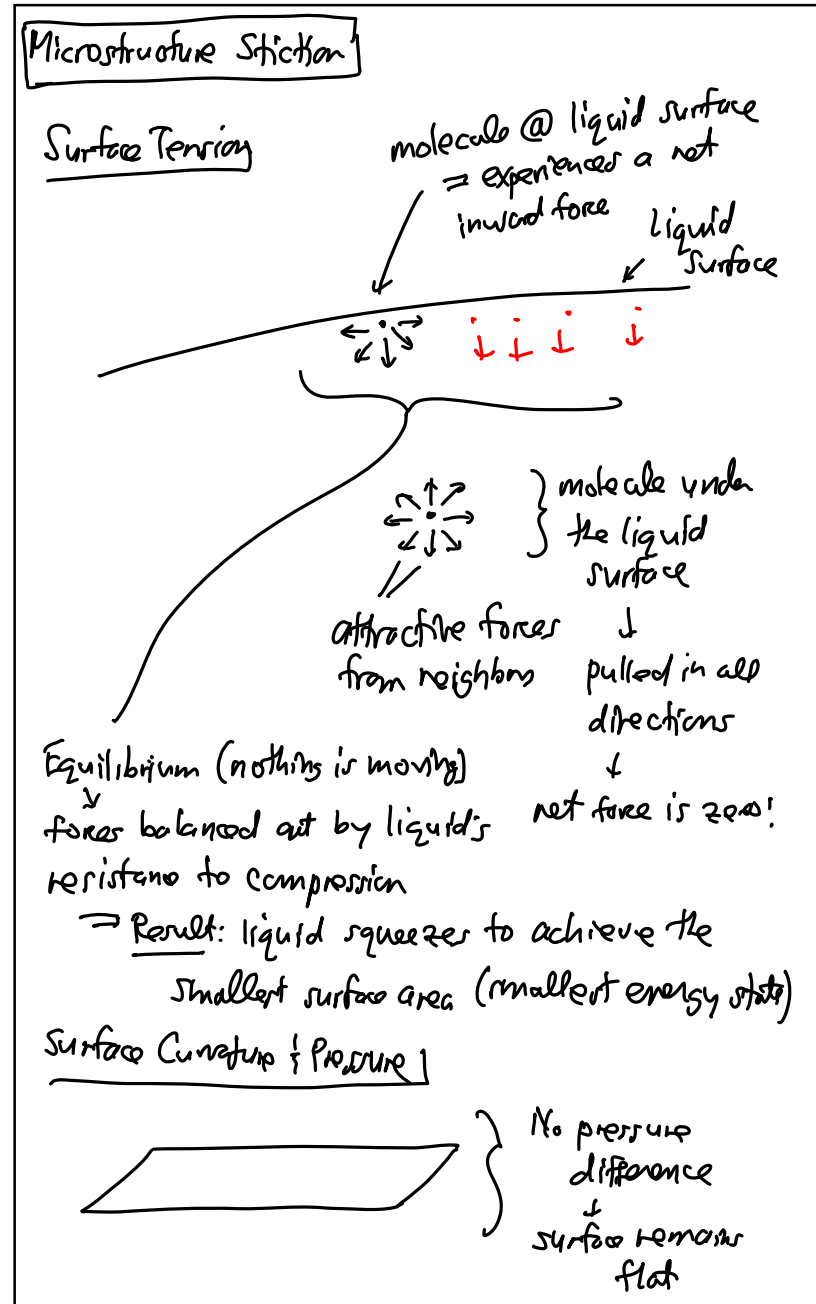 Microstructure Stiction
Surface Tension
molecule @ liquid surface
⇒ experiences a net
inward force
liquid
surface
} molecule under
the liquid
surface
↓
attractive forces
from neighbors
pulled in all
directions
↓
net force is zero!
Equilibrium (nothing is moving)
↓
forces balanced out by liquid's
resistance to compression
⇒ Result: liquid squeezes to achieve the
smallest surface area (smallest energy state)
Surface Curvature & Pressure
} No pressure
difference
↓
surface remains
flat